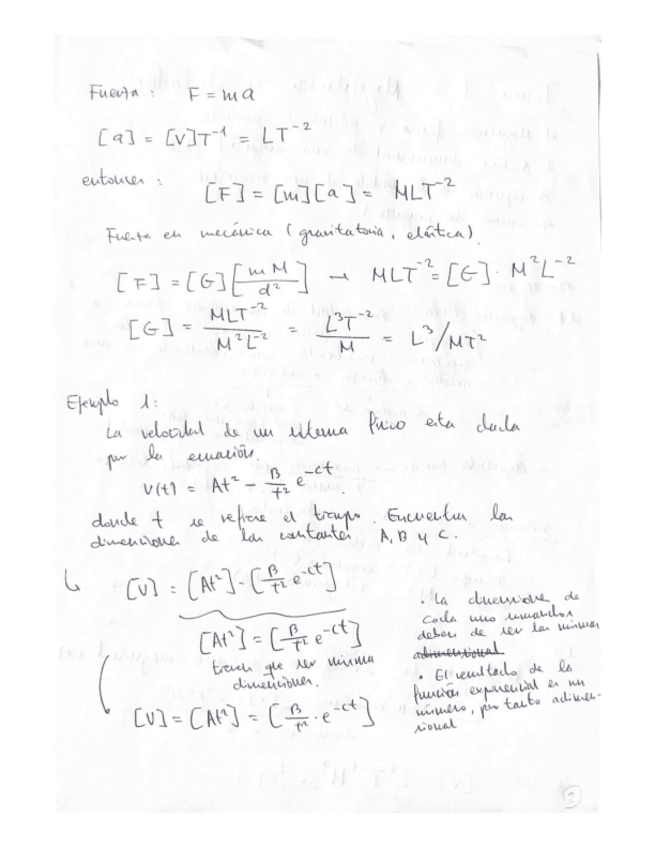 Fuerza : F = m a
[a] = [V]T⁻¹ = LT⁻²
entonces :
[F] = [m][a] = MLT⁻²
Fuerza en mecánica (gravitatoria, elástica).
[F] = [G] [mM/d²] → MLT⁻² = [G] · M²L⁻²
[G] = MLT⁻²/M²L⁻² = L³T⁻²/M = L³/MT²
Ejemplo 1:
La velocidad de un sistema físico esta dada
por la ecuación.
V(t) = At² - B/t² e^-ct.
donde t se refiere el tiempo. Encuentra las
dimensiones de las constantes A, B y C.
↳ [V] = [At²] - [B/t² e^-ct]
[At²] = [B/t² e^-ct]
tienen que ser misma
dimensiones.
[V] = [At²] = [B/t² · e^-ct]
• La dimensiones de
cada uno sumandos
deben de ser las mismas
adimensional
• El resultado de la
función exponencial es un
número, por tanto adimen-
sional
2